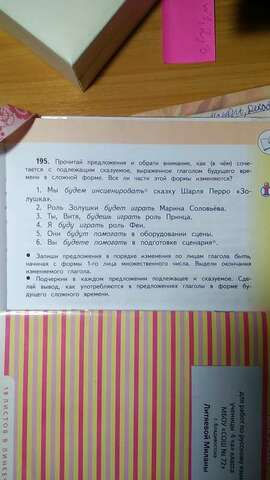 195. Прочитай предложения и обрати внимание, как (в чём) соче-
тается с подлежащим сказуемое, выраженное глаголом будущего вре-
мени в сложной форме. Все ли части этой формы изменяются?
1. Мы будем инсценировать сказку Шарля Перро «Зо-
лушка».
2. Роль Золушки будет играть Марина Соловьёва.
3. Ты, Витя, будешь играть роль Принца.
4. Я буду играть роль Феи.
5. Они будут помогать в оборудовании сцены.
6. Вы будете помогать в подготовке сценария.
• Запиши предложения в порядке изменения по лицам глагола быть,
начиная с формы 1-го лица множественного числа. Выдели окончания
изменяемого глагола.
• Подчеркни в каждом предложении подлежащее и сказуемое. Сде-
лай вывод, как употребляются в предложениях глаголы в форме бу-
дущего сложного времени.
18 ЛИСТОВ В ЛИНЕЙ
для работ по русскому язык
МБОУ «СОШ № 72»
г. Владивостока
Литяевой Миланы